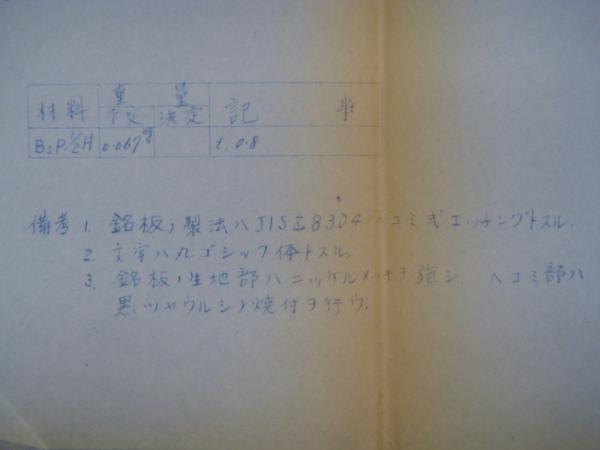 材料 重量 記事
予定 決定
BsP ½H 0.067 kg t. 0.8
備考 1. 銘板ノ製法ハJIS Z 8304ノヘコミ式エッチングトスル.
2. 文字ハ丸ゴシック体トスル.
3. 銘板ノ生地部ハニッケルメッキヲ施シ. ヘコミ部ハ
黒ツヤウルシノ焼付ヲ行ウ.